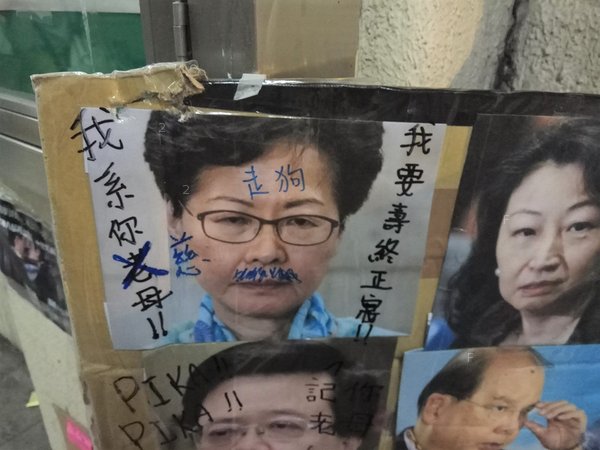 我系你老母!!
慈
走狗
我要壽終正寢!!
PIKA!!
PIKA!!
你母
記者